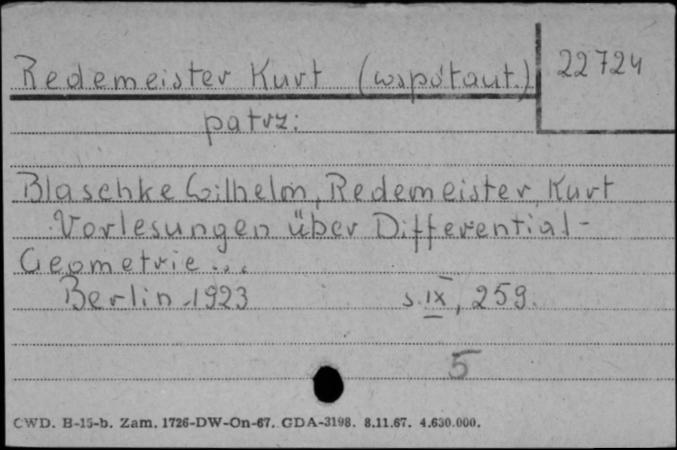 Redemeister Kurt (współaut.) 22724
patrz:
Blaschke Wilhelm, Redemeister, Kurt
Vorlesungen über Differential-
Geometrie...
Berlin 1923 s. IX, 259.
5
CWD. B-15-b. Zam. 1726-DW-On-67. GDA-3198. 8.11.67. 4.630.000.